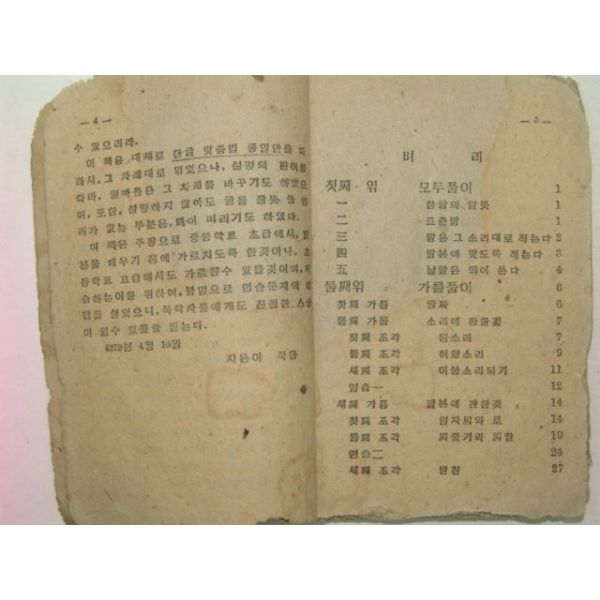 — 4 —
수 있으리라.
이 책은 대채로 한글 맞춤법 통일안을 따
라서, 그 차례대로 엮었으나, 설명의 편이를
따라, 얼마쯤은 그 차례를 바꾸기도 하였으
며, 또한, 설명하지 않아도 글을 잘못 쓸 염
려가 없는 부분은, 빼어 버리기도 하였다.
이 책은 주장으로 중등학교 초급에서,
본을 배우기 전에 가르치도록 한것이나,
등학교 고급에서도 가르칠수 있을것이며,
습하는이를 위하여, 붙임으로 연습문제의
답을 실었으니, 독학자들에게도 친절한 스승
이 될수 있을줄 믿는다.
4279년 4월 10일
지은이 적음
— 5 —
벼 리
첫째 엮 모두풀이 1
一 한글의 말뜻 1
二 표준말 1
三 말은 그 소리대로 적는다 2
四 말본에 맞도록 적는다 3
五 낱말은 띄어 쓴다 4
둘째 엮 가름풀이 6
첫째 가름 글짜 6
둘째 가름 소리에 관한것 7
첫째 조각 된소리 7
둘째 조각 히읗소리 9
세째 조각 이상소리되기 11
연습一 12
세째 가름 말본에 관한것 14
첫째 조각 임자씨와 토 14
둘째 조각 씨줄기와 씨끝 19
연습二 24
세째 조각 받침 27